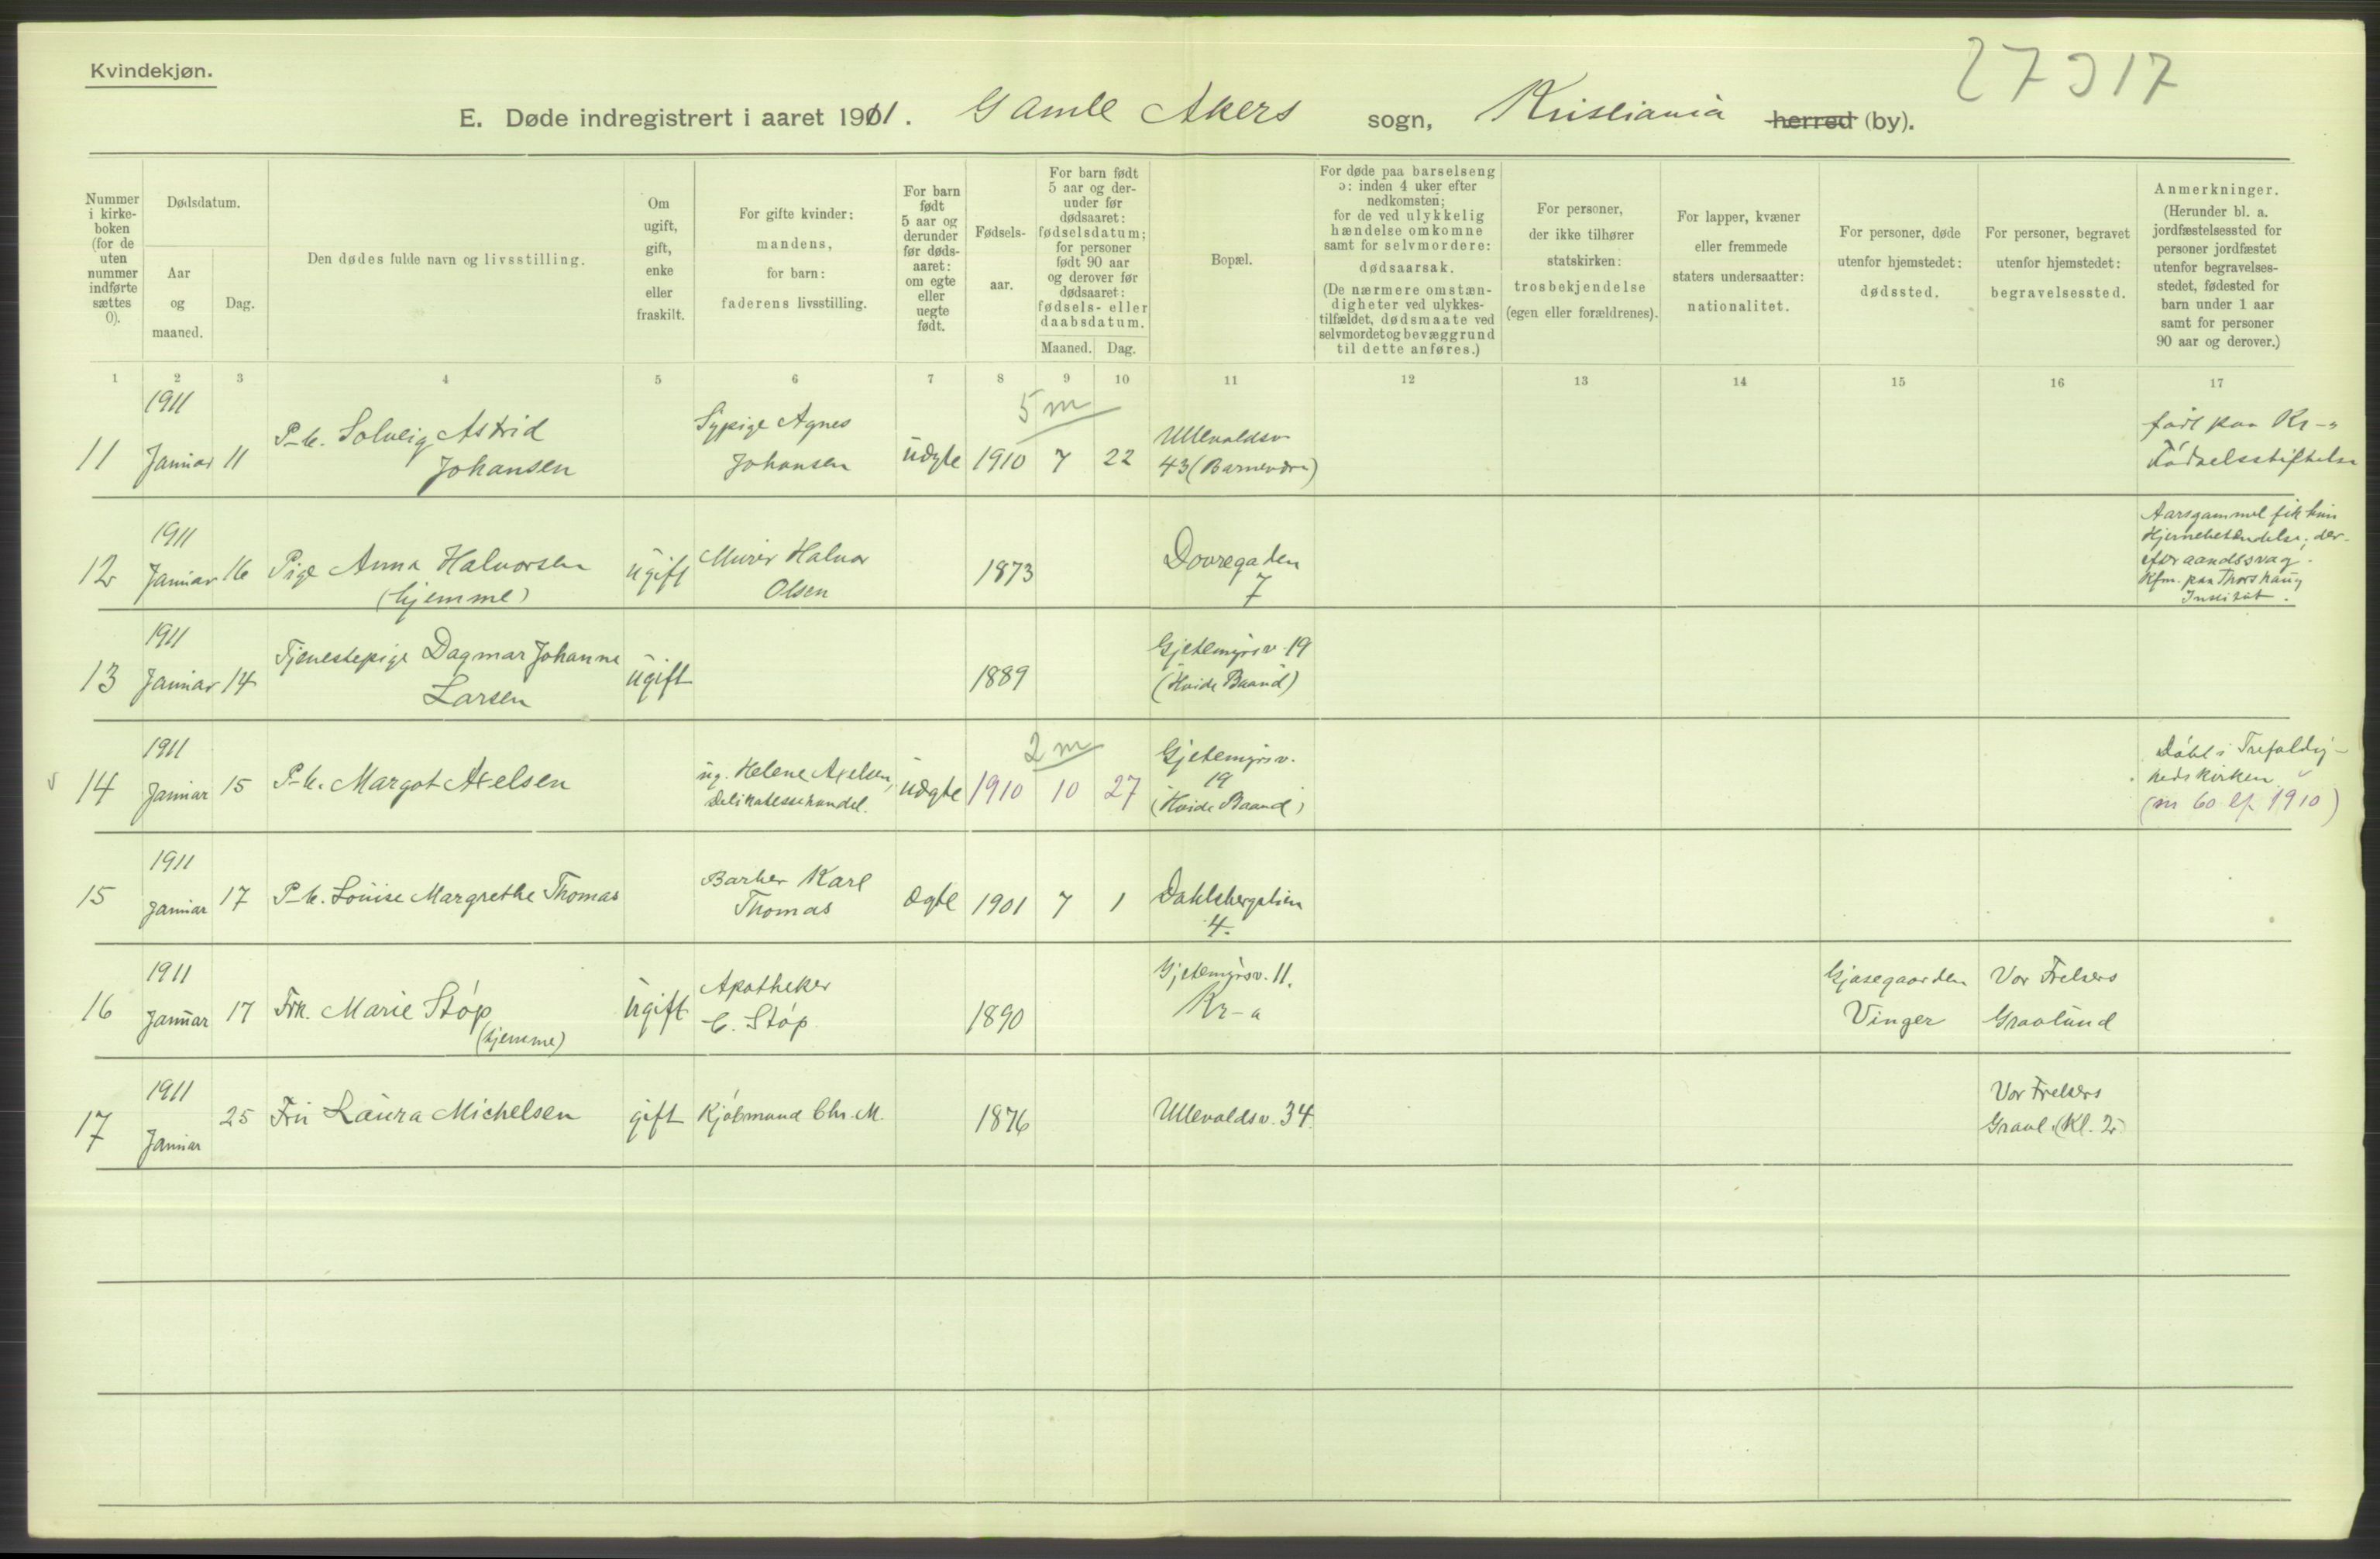 Kvindekjøn.
27 317
E. Døde indregistrert i aaret 1911. Gamle Akers sogn, Kristiania herred (by).
Nummer i kirke-boken (for de uten nummer indførte sættes 0).
Dødsdatum.
Aar og maaned.
Dag.
Den dødes fulde navn og livsstilling.
Om ugift, gift, enke eller fraskilt.
For gifte kvinder: mandens, for barn: faderens livsstilling.
For barn født 5 aar og derunder før døds-aaret: om egte eller uegte født.
Fødsels-aar.
For barn født 5 aar og der-under før dødsaaret: fødselsdatum; for personer født 90 aar og derover før dødsaaret: fødsels- eller daabsdatum.
Maaned. Dag.
Bopæl.
For døde paa barselseng ɔ: inden 4 uker efter nedkomsten; for de ved ulykkelig hændelse omkomne samt for selvmordere: dødsaarsak.
(De nærmere omstæn-digheter ved ulykkes-tilfældet, dødsmaate ved selvmordet og bevæggrund til dette anføres.)
For personer, der ikke tilhører statskirken: trosbekjendelse (egen eller forældrenes).
For lapper, kvæner eller fremmede staters undersaatter: nationalitet.
For personer, døde utenfor hjemstedet: dødssted.
For personer, begravet utenfor hjemstedet: begravelsessted.
Anmerkninger.
(Herunder bl. a. jordfæstelsessted for personer jordfæstet utenfor begravelses-stedet, fødested for barn under 1 aar samt for personer 90 aar og derover.)
1 2 3 4 5 6 7 8 9 10 11 12 13 14 15 16 17
1911
5 m
11 Januar 11 P-b. Solveig Astrid Johansen
Sypige Agnes Johansen
uægte 1910 7 22
Ullevoldsv. 43 (Barnehvn)
født paa Kr-a Fødselsstiftelse
1911
12 Januar 16 Pige Anna Halvorsen (hjemme)
ugift
Murer Halvor Olsen
1873
Dovregaden 7
Aarsgammel fik hun
Hjernebetændelse; der-
efter aandssvag.
Kfm. paa Thorshaug
Institut.
1911
13 Januar 14 Tjenestepige Dagmar Johanne Larsen
ugift
1889
Gjetemyrsv. 19 (Hvide Baand)
1911
2 m
14 Januar 15 P-b. Margot Axelsen
ug. Helene Axelsen, Delikatessehandel.
uægte 1910 10 27
Gjetemyrsv. 19 (Hvide Baand)
Døbt i Trefoldig-
hedskirken
(nr 60 1910)
1911
15 Januar 17 P-b. Louise Margrethe Thomas
Barber Karl Thomas
ægte 1901 7 1
Dahlsbergstien 4.
1911
16 Januar 17 Frk. Marie Støp (hjemme)
ugift
Apotheker C. Støp
1890
Gjetemyrsv. 11. Kr-a
Gjæsegaarden Vinger
Vor Frelsers Gravlund
1911
17 Januar 25 Fru Laura Michelsen
gift Kjøbmand Chr. M.
1876
Ullevoldsv. 34.
Vor Frelsers Gravl. (Kl. 2)